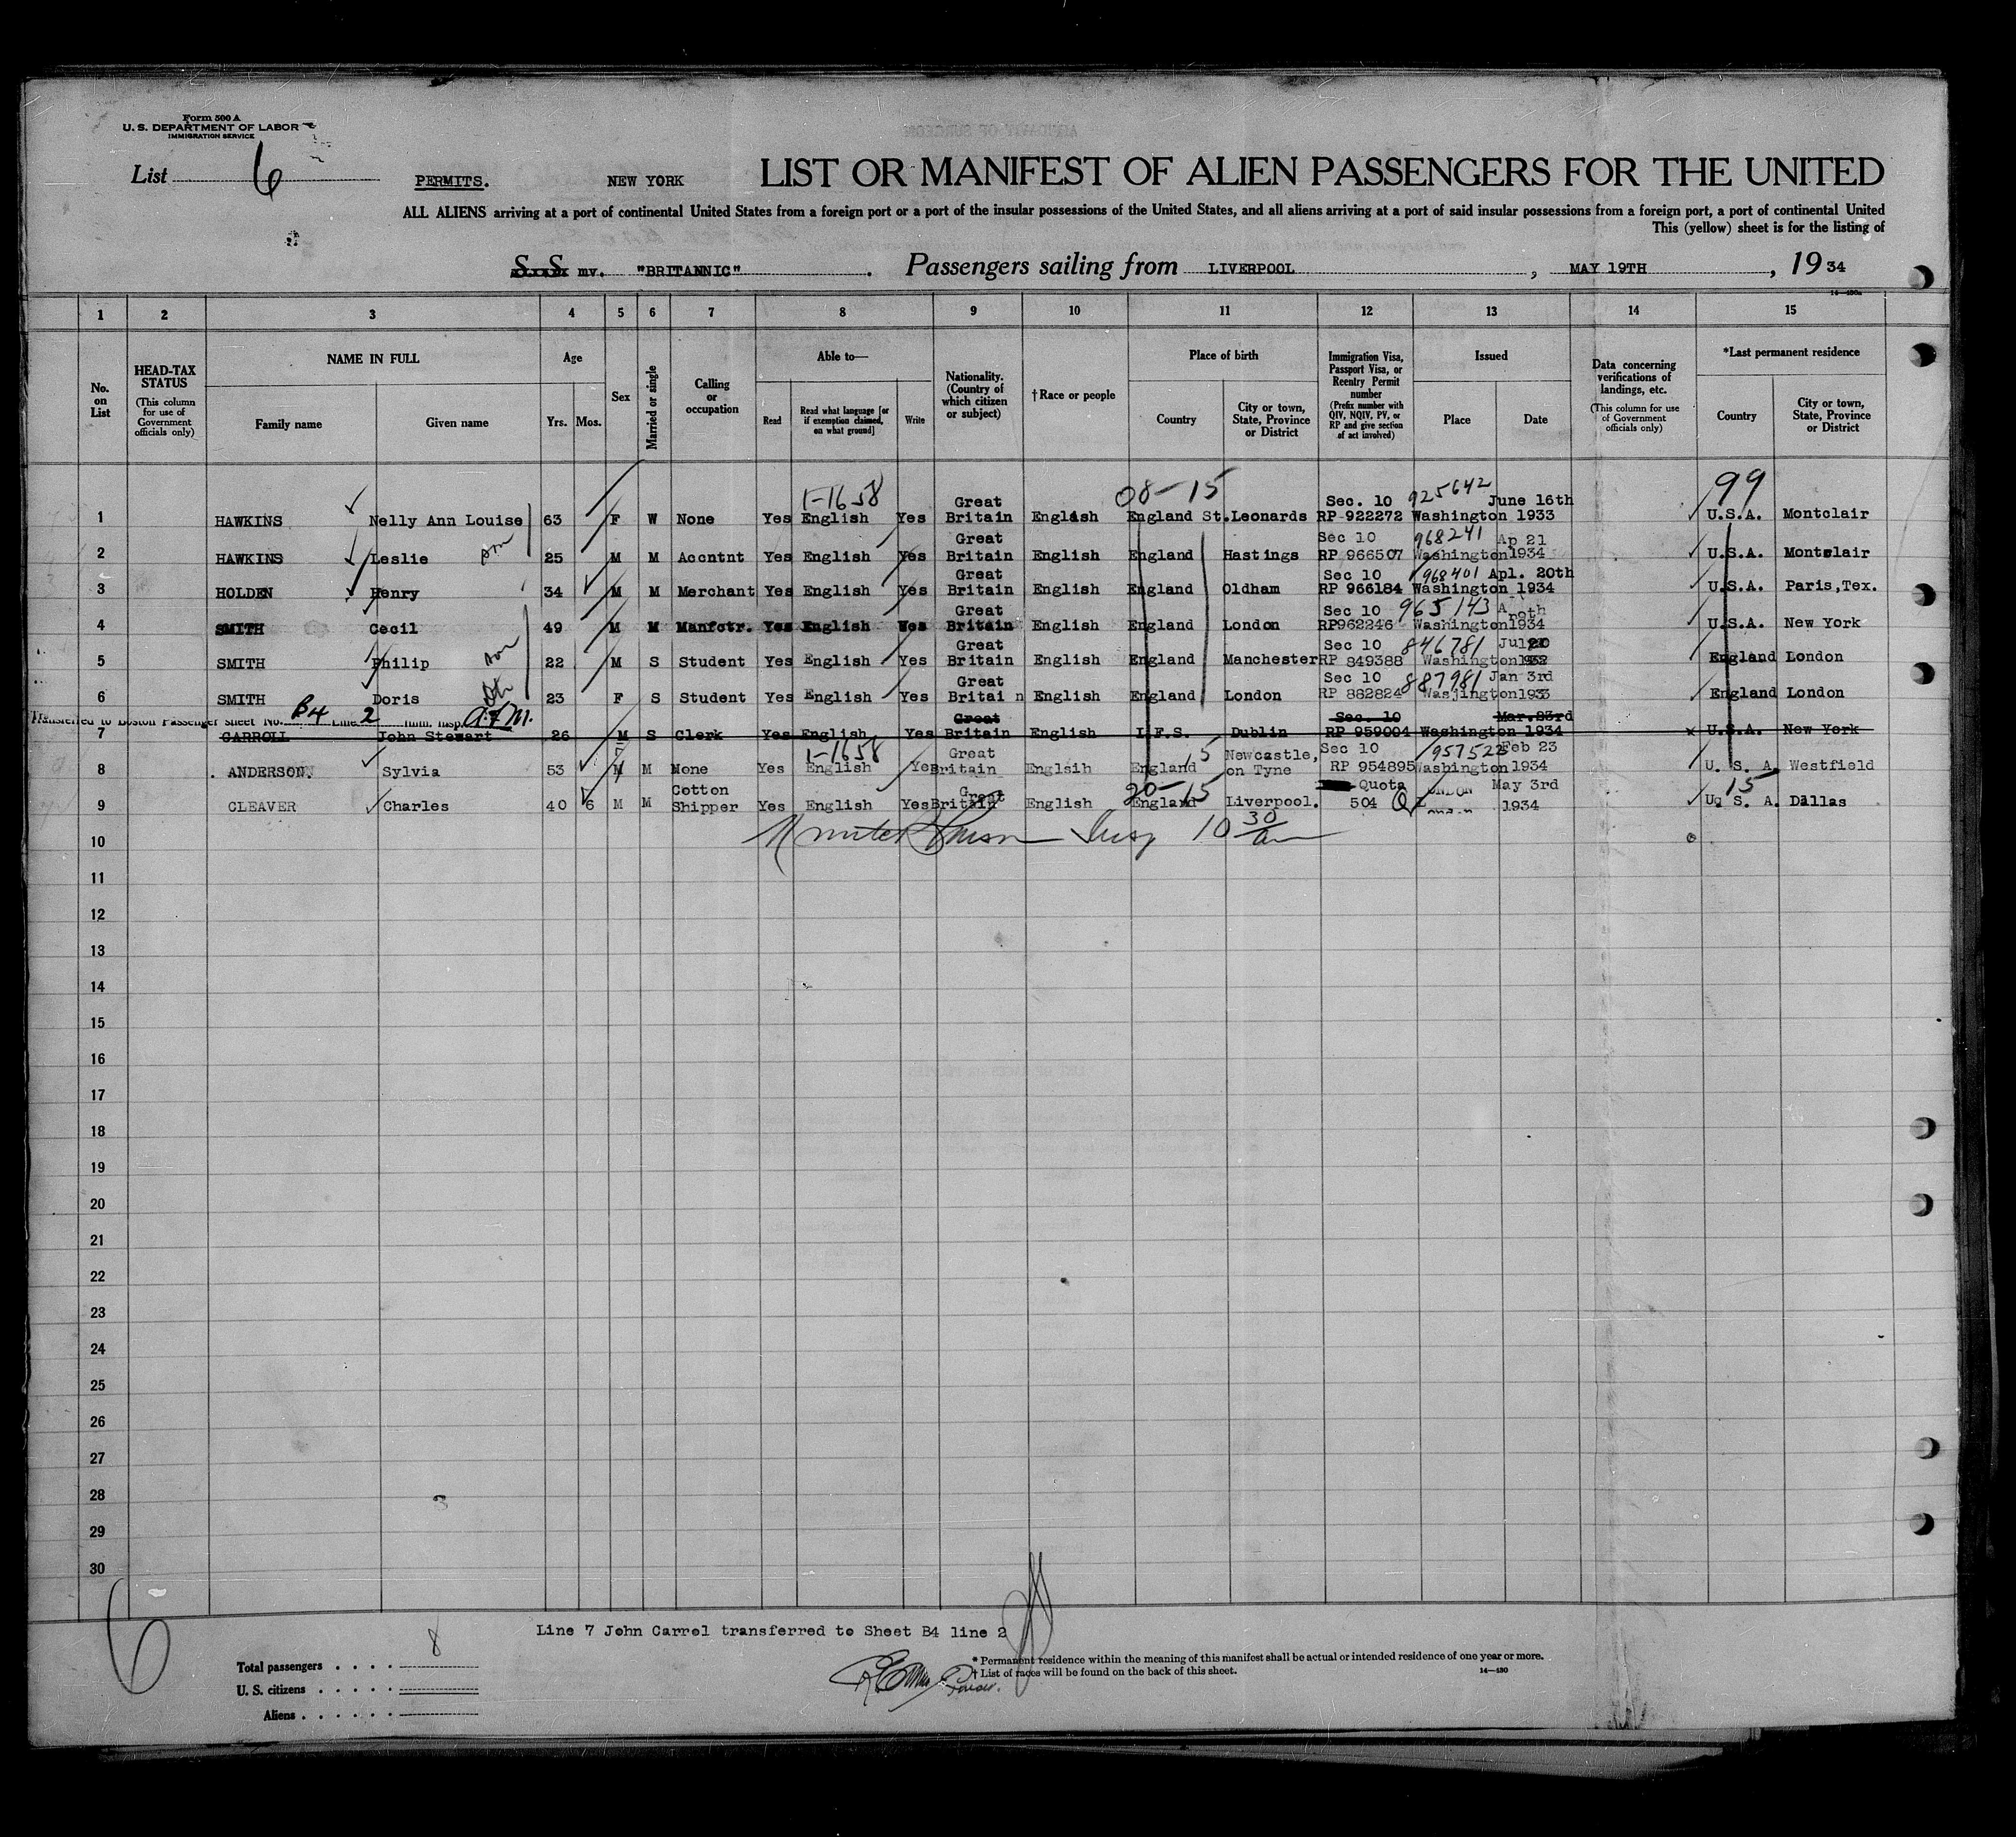 Form 500 A
U. S. DEPARTMENT OF LABOR
IMMIGRATION SERVICE
List 6
PERMITS. NEW YORK LIST OR MANIFEST OF ALIEN PASSENGERS FOR THE UNITED
ALL ALIENS arriving at a port of continental United States from a foreign port or a port of the insular possessions of the United States, and all aliens arriving at a port of said insular possessions from a foreign port, a port of continental United
This (yellow) sheet is for the listing of
S. S. mv. "BRITANNIC" . Passengers sailing from LIVERPOOL , MAY 19TH , 19 34
1 2 3 4 5 6 7 8 9 10 11 12 13 14 15
No. on List
HEAD-TAX STATUS (This column for use of Government officials only)
NAME IN FULL
Family name Given name
Age
Yrs. Mos.
Sex
Married or single
Calling or occupation
Able to—
Read Read what language [or if exemption claimed, on what ground] Write
Nationality. (Country of which citizen or subject)
†Race or people
Place of birth
Country City or town, State, Province or District
Immigration Visa, Passport Visa, or Reentry Permit number (Prefix number with QIV, NQIV, PV, or RP and give section of act involved)
Issued
Place Date
Data concerning verifications of landings, etc. (This column for use of Government officials only)
*Last permanent residence
Country City or town, State, Province or District
1-1658 08-15 925642 99
1 HAWKINS Nelly Ann Louise 63 F W None Yes English Yes Great Britain English England St.Leonards Sec. 10 RP 922272 Washington June 16th 1933 U.S.A. Montclair
968241
2 HAWKINS Leslie 25 M M Accntnt Yes English Yes Great Britain English England Hastings Sec 10 RP 966507 Washington Ap 21 1934 U.S.A. Montclair
968401
3 HOLDEN Henry 34 M M Merchant Yes English Yes Great Britain English England Oldham Sec 10 RP 966184 Washington Apl. 20th 1934 U.S.A. Paris,Tex.
965143
4 SMITH Cecil 49 M M Manfctr. Yes English Yes Great Britain English England London Sec 10 RP962246 Washington 1934 U.S.A. New York
846781
5 SMITH Philip 22 M S Student Yes English Yes Great Britain English England Manchester Sec 10 RP 849388 Washington Jul 20 1932 England London
887981
6 SMITH Doris 23 F S Student Yes English Yes Great Britai n English England London Sec 10 RP 882824 Wasjington Jan 3rd 1933 England London
Transferred to Boston Passenger sheet No. B4 Line 2 Imm. Insp. A.F.M.
7 CARROLL John Stewart 26 M S Clerk Yes English Yes Great Britain English I.F.S. Dublin Sec. 10 RP 959004 Washington Mar.23rd 1934 U.S.A. New York
1-1658 15 957522
8 ANDERSON. Sylvia 53 M M None Yes English Yes Great Britain Englsih England Newcastle, on Tyne Sec 10 RP 954895 Washington Feb 23 1934 U. S. A. Westfield
20-15 15
9 CLEAVER Charles 40 6 M M Cotton Shipper Yes English Yes Great Britain English England Liverpool. Quota 504 May 3rd 1934 U. S. A. Dallas
Insp 10 30/am
10
11
12
13
14
15
16
17
18
19
20
21
22
23
24
25
26
27
28
29
30
6
Line 7 John Carrol transferred to Sheet B4 line 2
Total passengers . . . . 8
U. S. citizens . . . . .
Aliens . . . . . .
* Permanent residence within the meaning of this manifest shall be actual or intended residence of one year or more.
† List of races will be found on the back of this sheet.
14—480